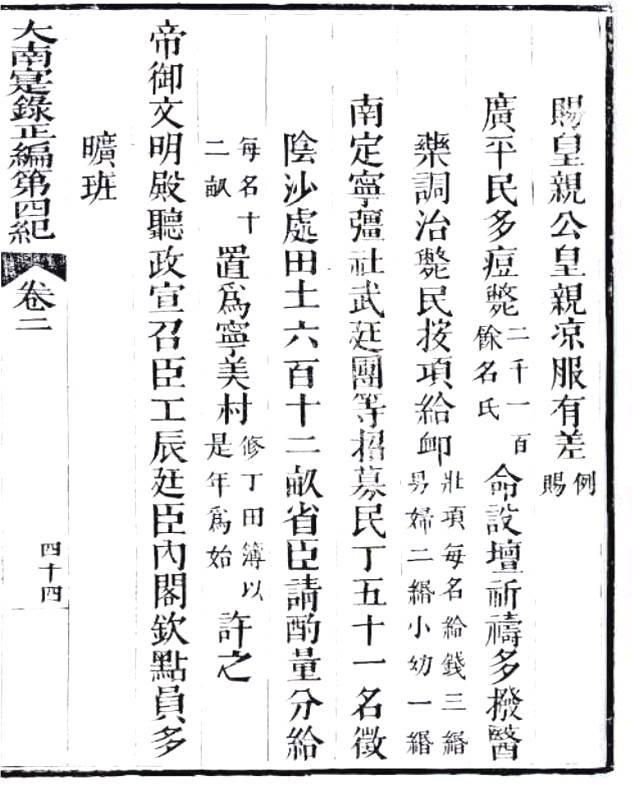 賜皇親公皇親凉服有差例賜
廣平民多痘斃二千一百餘名氏命設壇祈禱多撥醫
藥調治斃民按項給卹壯項每名給錢三緡男婦二緡小幼一緡
南定寧彊社武廷團等招募民丁五十一名徵
陰沙處田土六百十二畝省臣請酌量分給
每名十二畝置爲寧美村修丁田簿以是年爲始許之
帝御文明殿聽政宣召臣工辰廷臣內閣欽點員多
曠班
大南寔錄正編第四紀 卷二 四十四